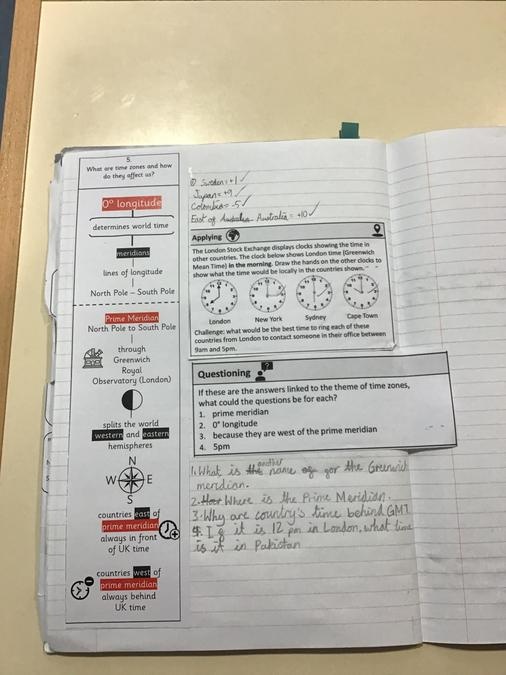 5.
What are time zones and how
do they affect us?
0° longitude
determines world time
meridians
lines of longitude
North Pole – South Pole
Prime Meridian
North Pole to South Pole
through
Greenwich
Royal
Observatory (London)
splits the world
western and eastern
hemispheres
N
W E
S
countries east of
prime meridian
always in front
of UK time
countries west of
prime meridian
always behind
UK time
① Sweden = +1 ✓
Japan = +9 ✓
Colombia = -5 ✓
East of Australia Australia = +10 ✓
Applying
The London Stock Exchange displays clocks showing the time in
other countries. The clock below shows London time (Greenwich
Mean Time) in the morning. Draw the hands on the other clocks to
show what the time would be locally in the countries shown.
London New York Sydney Cape Town
Challenge: what would be the best time to ring each of these
countries from London to contact someone in their office between
9am and 5pm.
Questioning
If these are the answers linked to the theme of time zones,
what could the questions be for each?
1. prime meridian
2. 0° longitude
3. because they are west of the prime meridian
4. 5pm
1. What is the another name of gor the Greenwich
meridian.
2. Where is the Prime Meridian.
3. Why are country's time behind GMT
4. If it is 12 pm in London, what time
is it in Pakistan